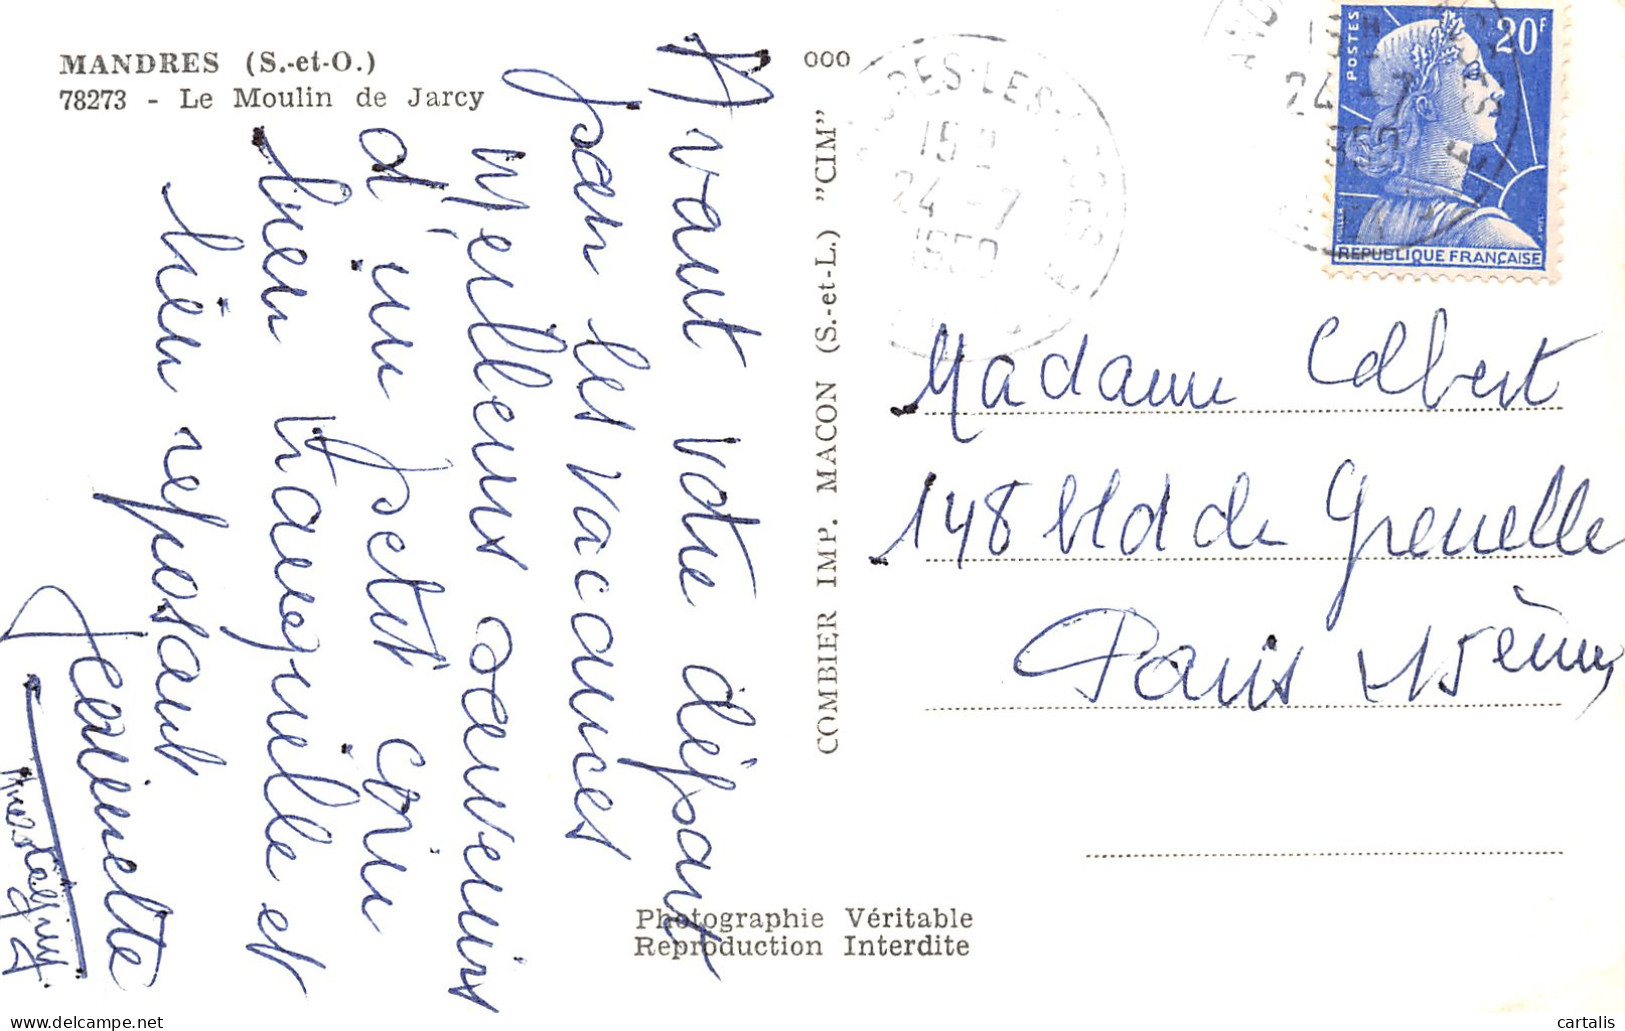 MANDRES (S.-et-O.)
78273 - Le Moulin de Jarcy
Avant votre départ
par les vaccances
meilleurs souvenirs
d'un petit coin
bien tranquille et
bien reposant
COMBIER IMP. MACON (S.-et-L.) "CIM"
000
15
24 -7
24 -7
POSTES
20F
REPUBLIQUE FRANÇAISE
Madame Colbert
148 bld de Grenelle
Paris 15ème
Photographie Véritable
Reproduction Interdite
delcampe.net
cartalis